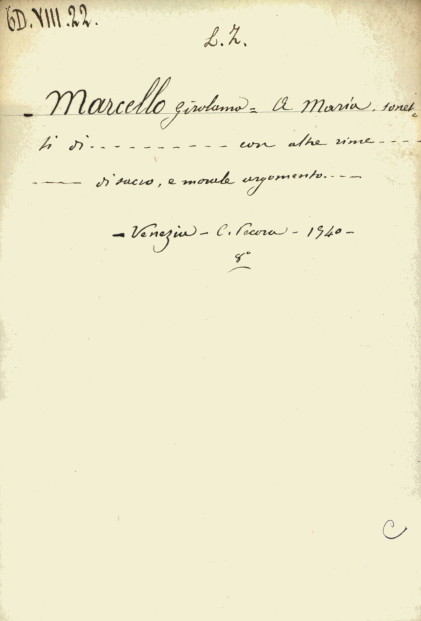 6D.VIII.22.
L.Z.
- Marcello Girolamo = A Maria. sonet=
ti di - - - - - - - - - con altre rime - - - -
- - - - di sacro, e morale argomento. - - -
- Venezia - C. Pecora - 1740 -
8°
C